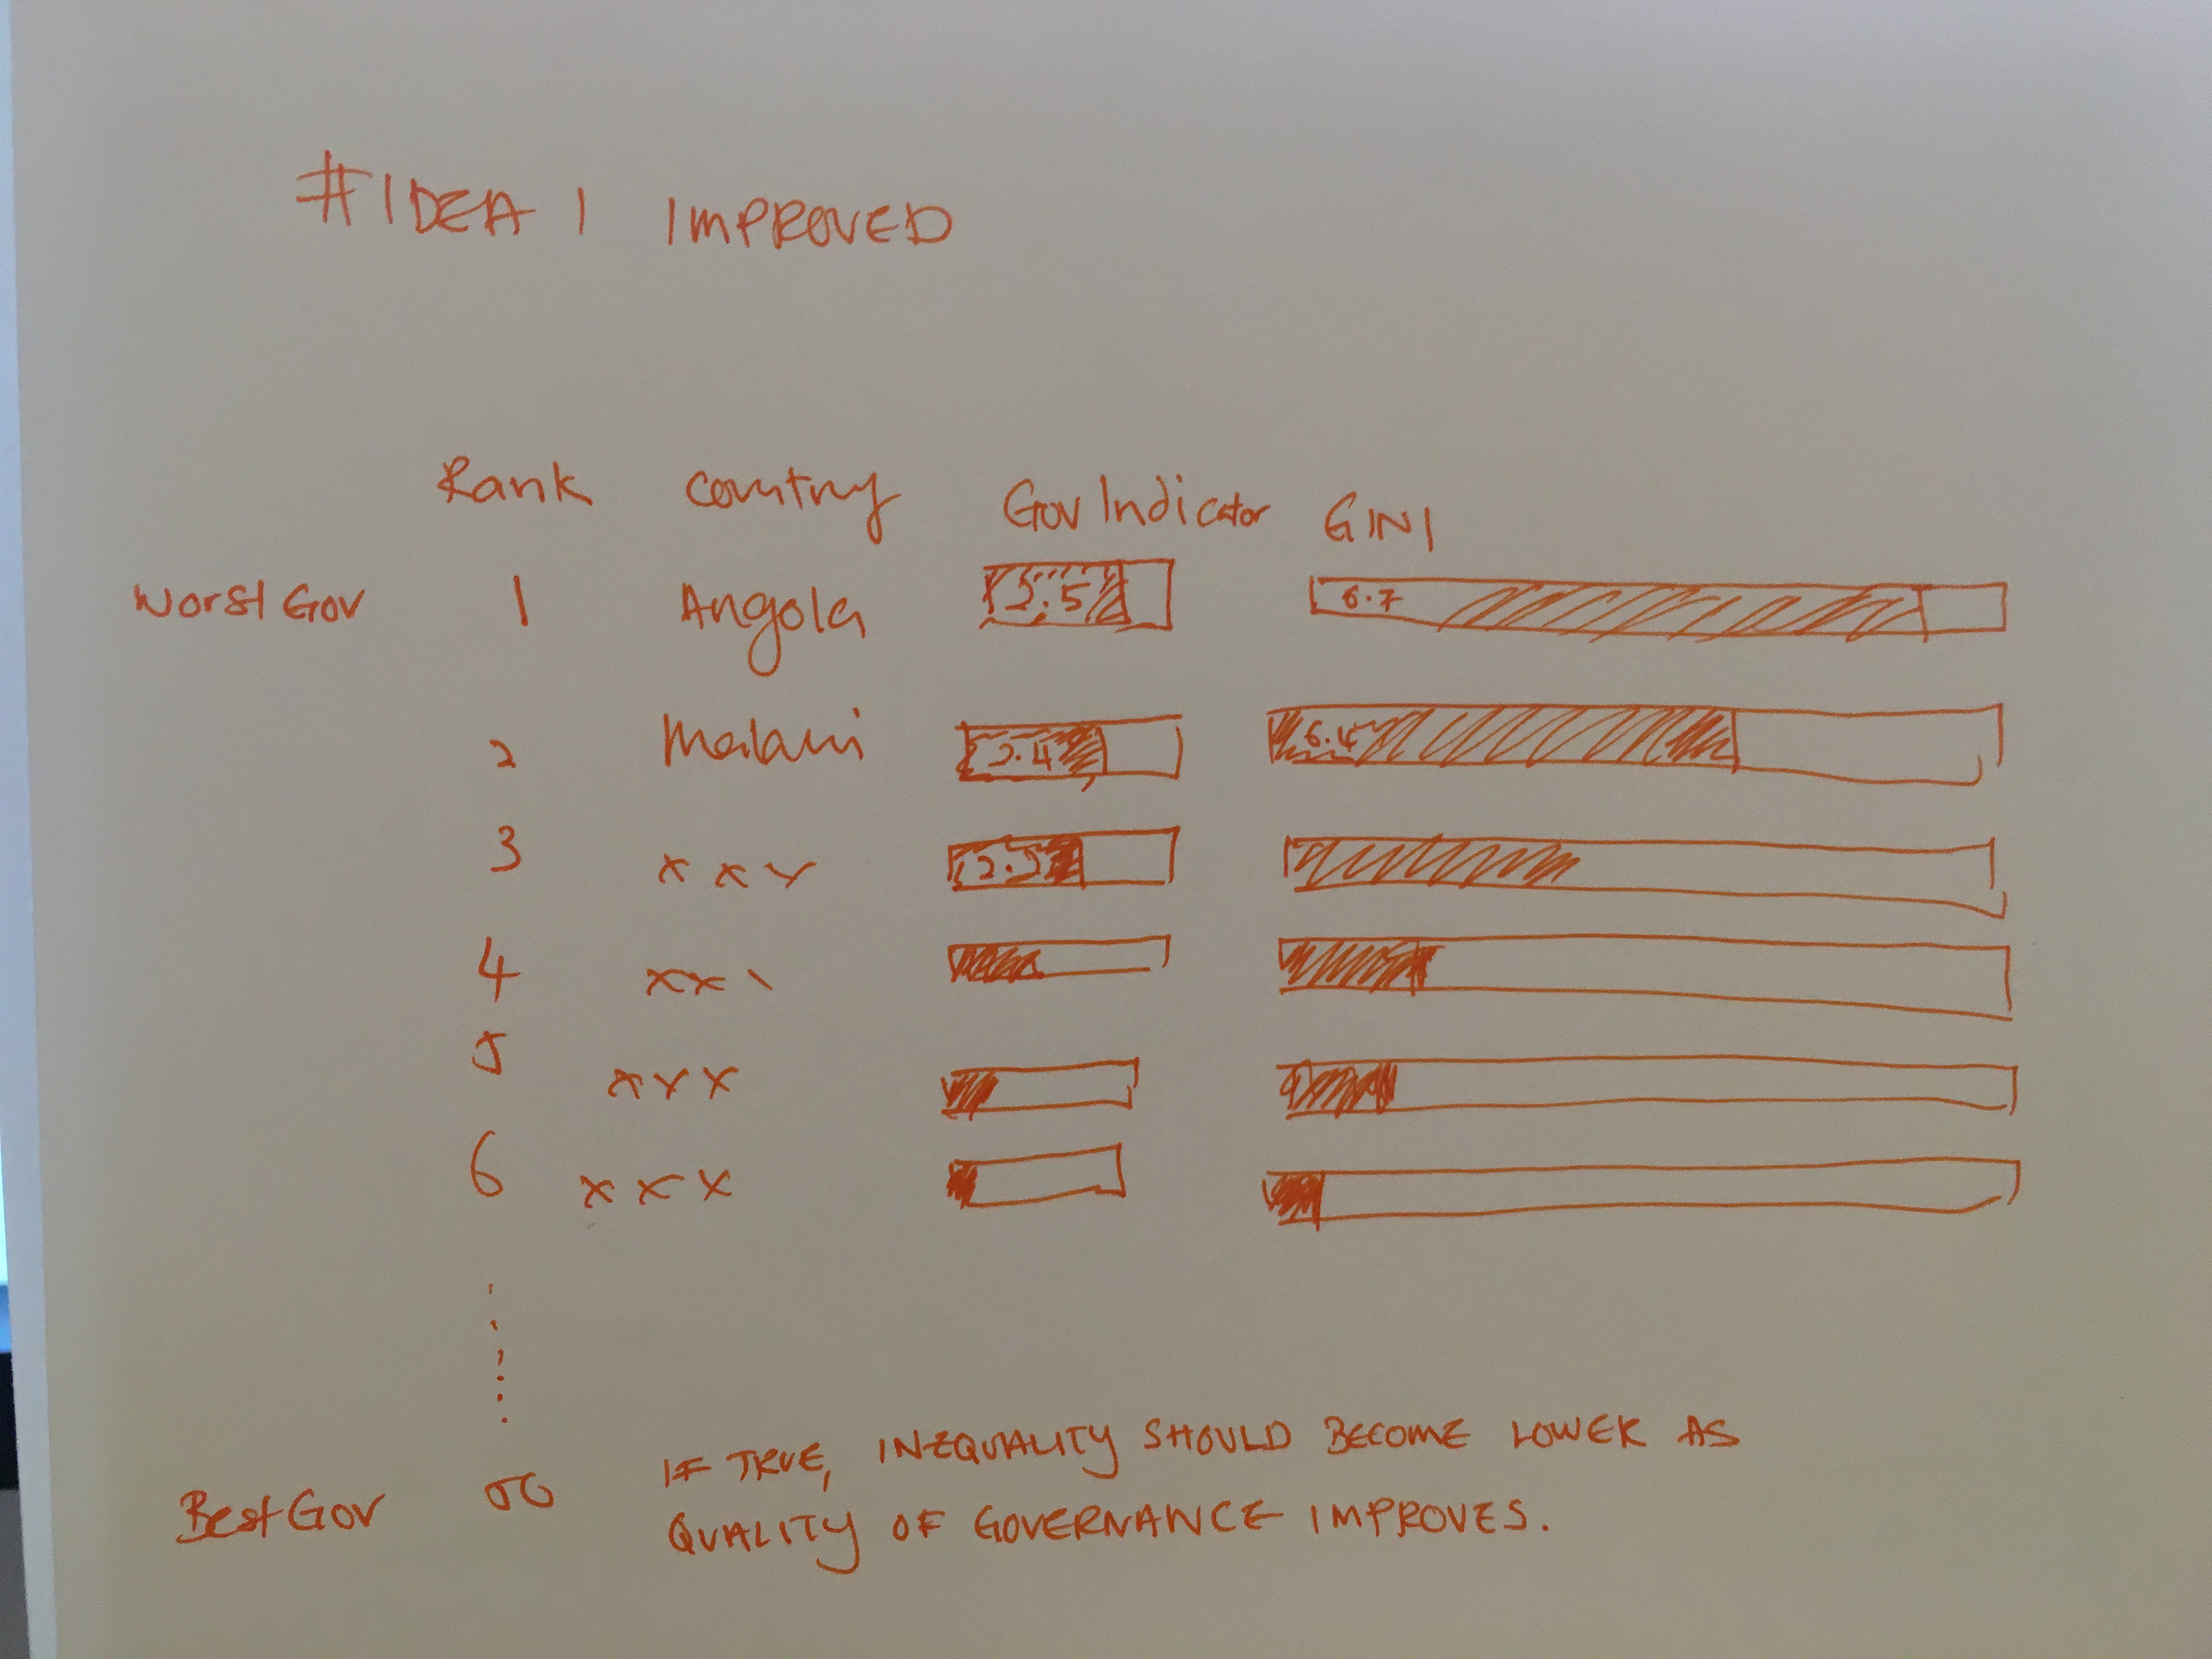 #IDEA 1 IMPROVED
Rank Country Gov Indicator GINI
Worst Gov 1 Angola 2.5 6.7
2 Malawi 2.4 6.4
3 x x x
4 x x x
5 x x x
6 x x x
IF TRUE, INEQUALITY SHOULD BECOME LOWER AS
Best Gov QUALITY OF GOVERNANCE IMPROVES.